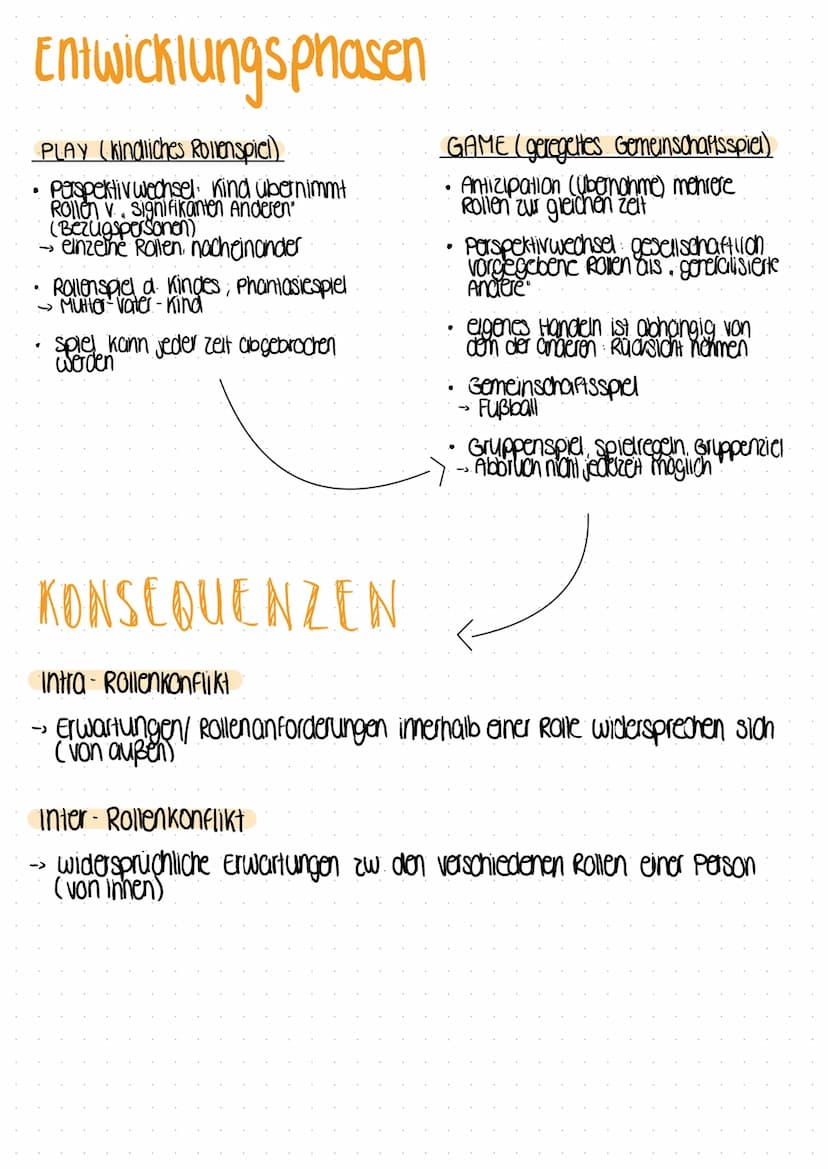 Entwicklungsphasen
PLAY (kindliches Rollenspiel)
• Perspektivwechsel: Kind übernimmt
Rollen v. „signifikanten Anderen"
(Bezugspersonen)
→ einzelne Rollen, nacheinander
• Rollenspiel d. Kindes, Phantasiespiel
→ Mutter-Vater-Kind
• Spiel kann jeder zeit abgebrochen
werden
GAME (geregeltes Gemeinschaftsspiel)
• Antizipation (Übernahme) mehrere
Rollen zur gleichen zeit
• Perspektivwechsel: gesellschaftlich
vorgegebene Rollen als „generalisierte
Andere"
• eigenes Handeln ist abhängig von
dem der anderen: Rücksicht nehmen
• Gemeinschaftsspiel
→ Fußball
• Gruppenspiel, Spielregeln, Gruppenziel
→ Abbruch nicht jederzeit möglich
KONSEQUENZEN
Intra-Rollenkonflikt
→ Erwartungen/ Rollenanforderungen innerhalb einer Rolle widersprechen sich
(von außen)
Inter-Rollenkonflikt
→ widersprüchliche Erwartungen zw. den verschiedenen Rollen einer Person
(von innen)